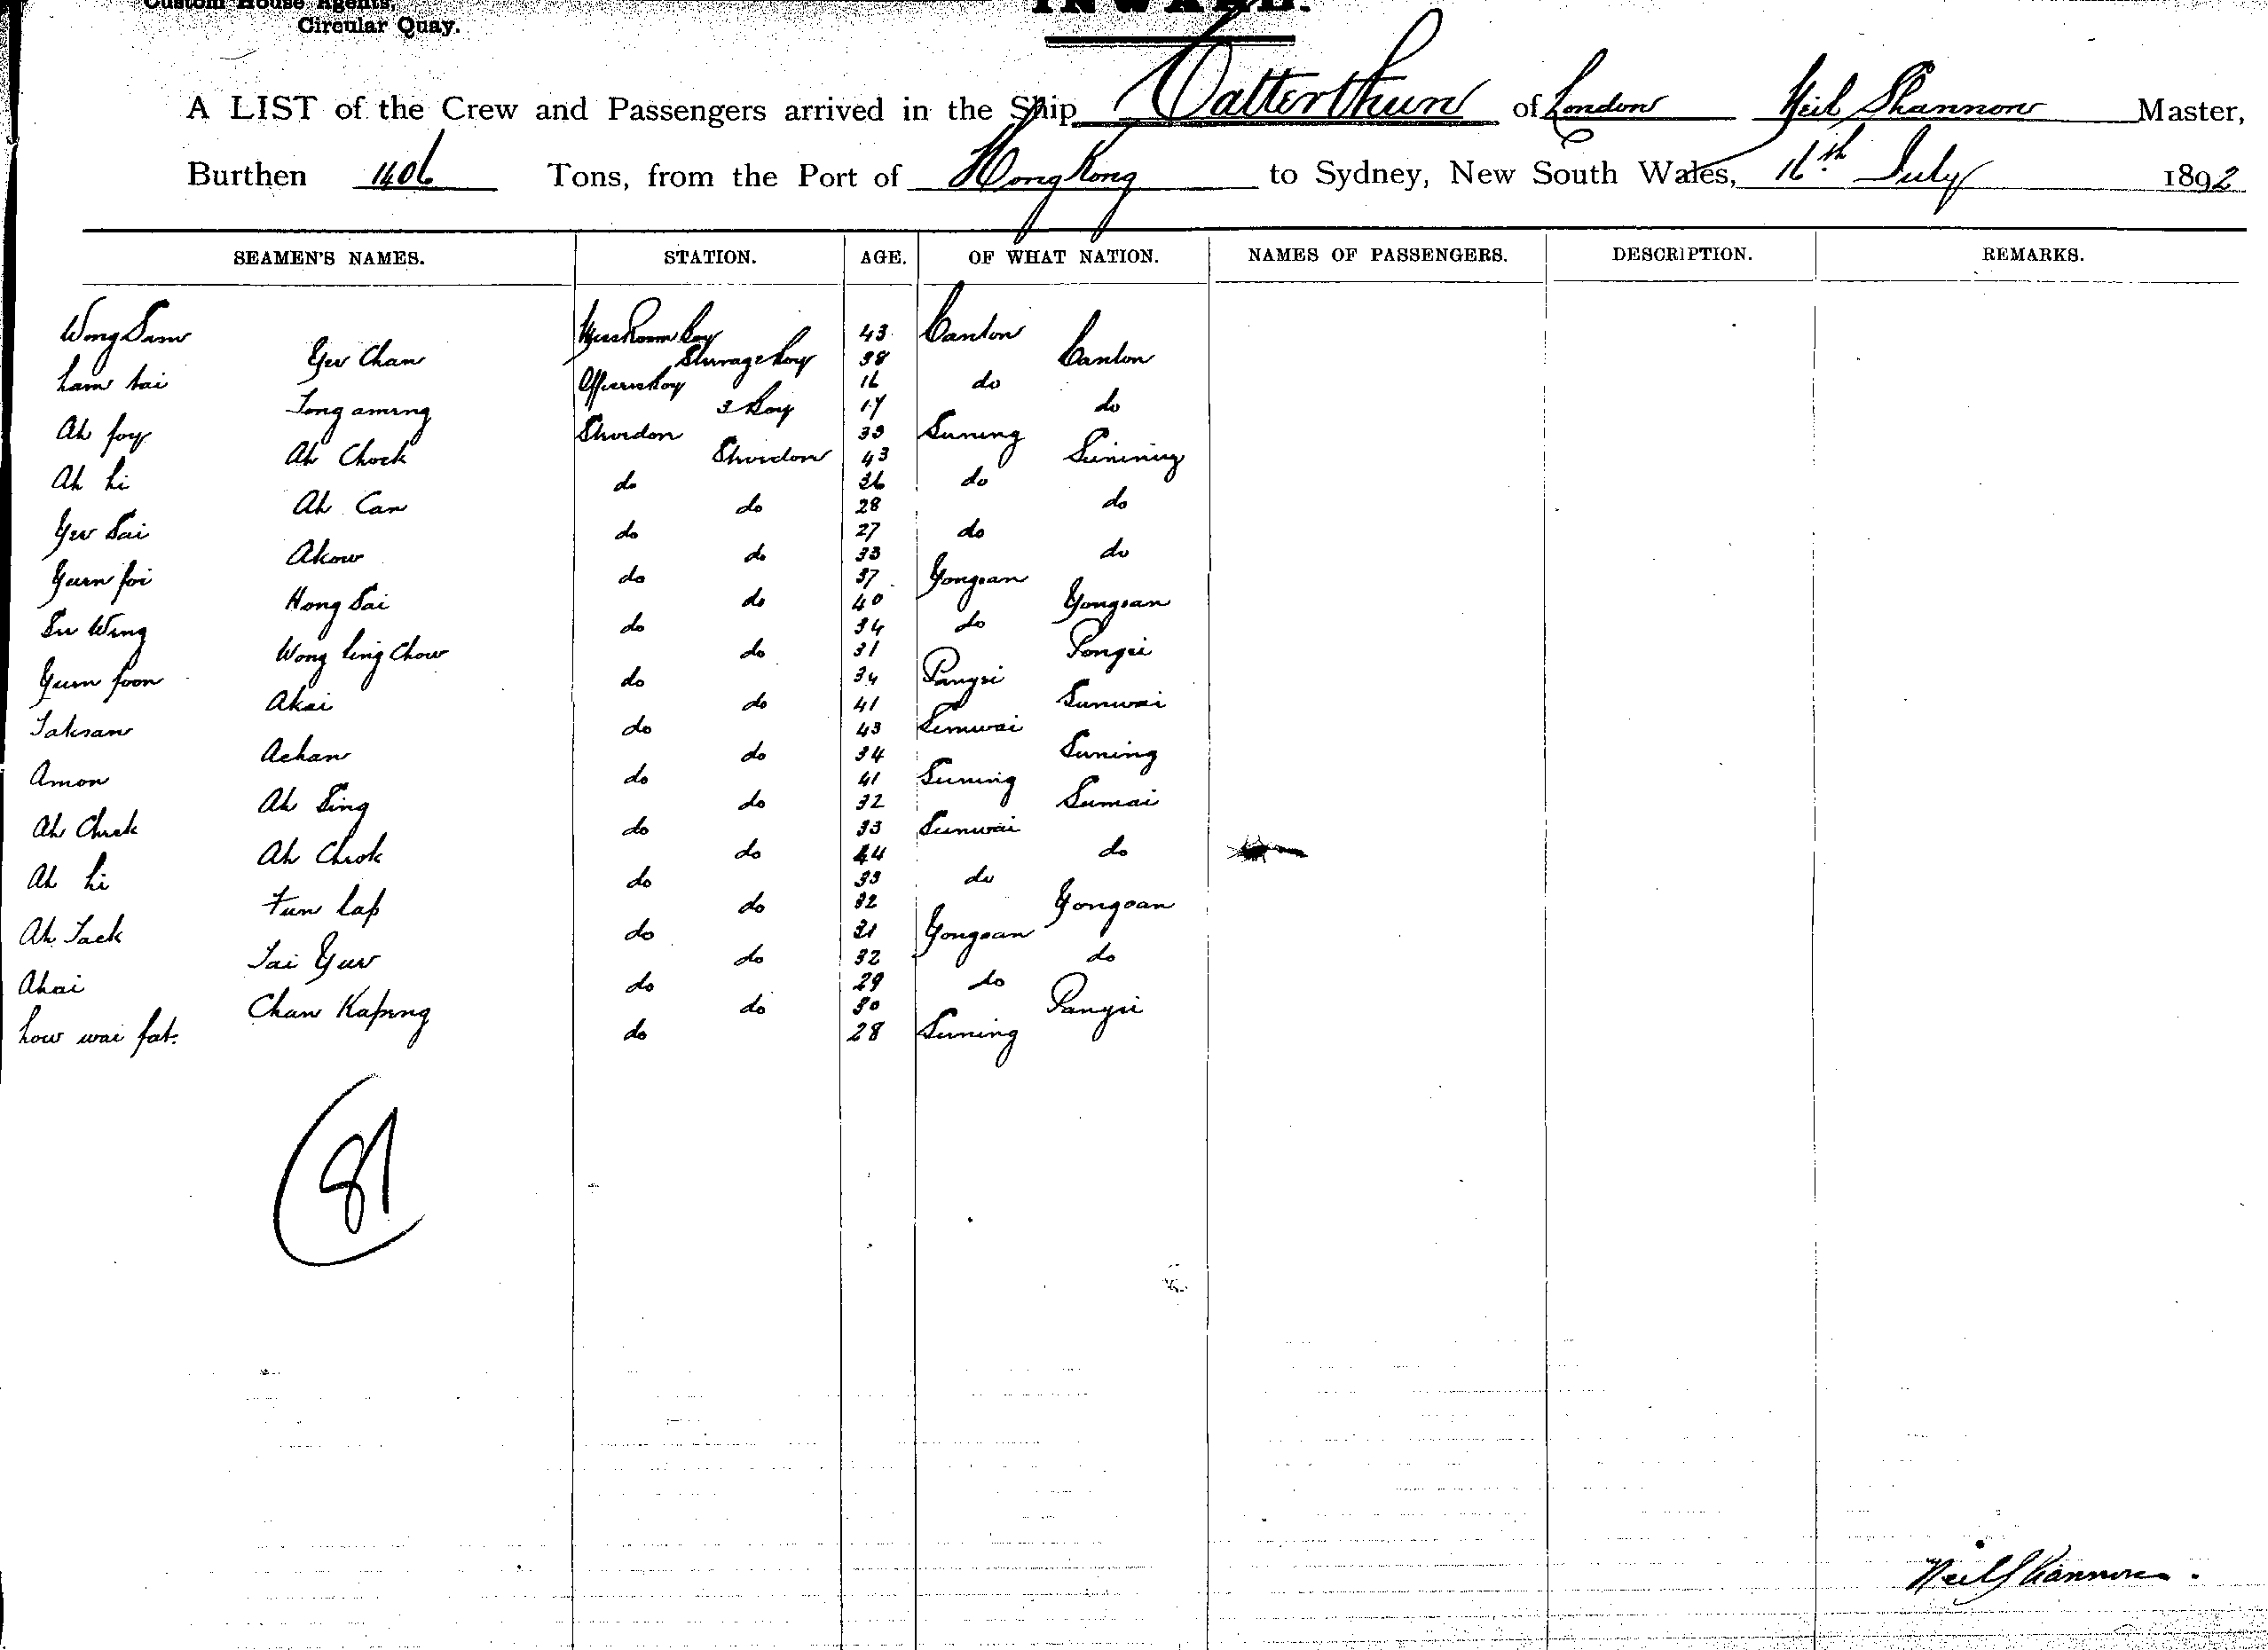 Custom House Agents,
Circular Quay.
INWARD.
A LIST of the Crew and Passengers arrived in the Ship Catterthun of London Neil Shannon Master,
Burthen 1406 Tons, from the Port of Hong Kong to Sydney, New South Wales, 16th July 1892
SEAMEN'S NAMES. STATION. AGE. OF WHAT NATION. NAMES OF PASSENGERS. DESCRIPTION. REMARKS.
Wong Sam Mess Room Boy 43 Canton
Yew Chan Steerage boy 38 Canton
Lam tai Officers boy 16 do
Tong aming 3 Boy 17 do
Ah foy 39 Suning
Ah Chock 43 Suning
Ah Li do 36 do
Ah Can do 28 do
Yew Sai do 27 do
Akow do 33 do
Yuen foi do 37 Yongsan
Hong Sai do 40 Yongsan
Su Wing do 34 do
Wong ling Chow do 31 Pongsi
Yuen foon do 34 Pangsi
Akai do 41 Sunwai
Taksan do 43 Sunwai
Achan do 34 Suning
Amon do 41 Suning
Ah Sing do 32 Sumai
Ah Chuck do 33 Sunwai
Ah Chok do 44 do
Ah Li do 33 do
Fun Lap do 32 Yongsan
Ah Jack do 31 Yongsan
Tai Yuw do 32 do
Ahai do 29 do
Chan Kaping do 30 Pangsi
Low wai fat. do 28 Suning
81
Neil Shannon